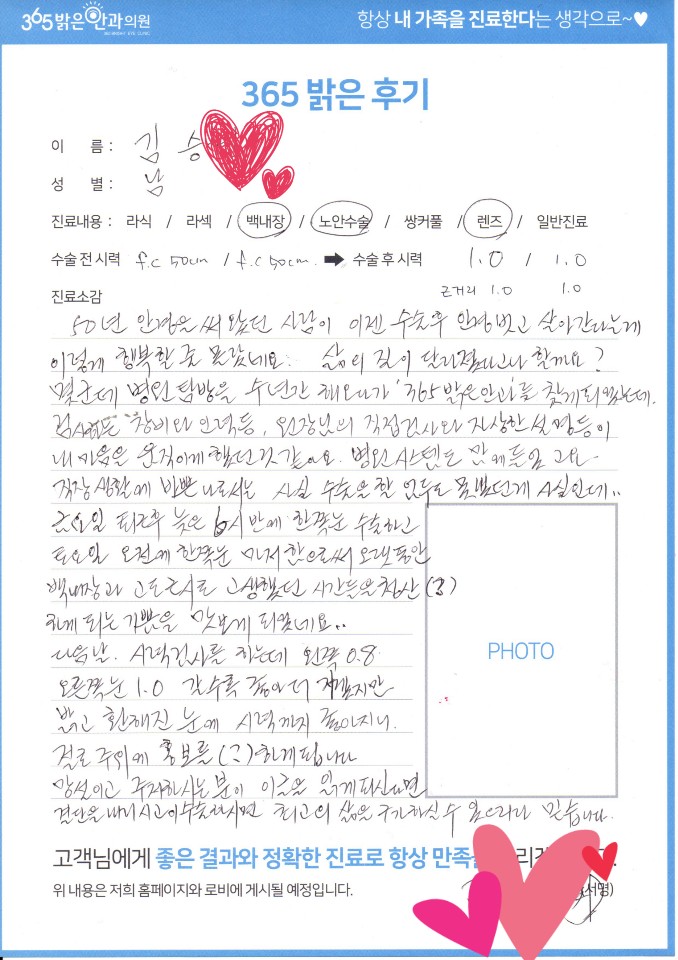 365 밝은 안과의원
항상 내 가족을 진료한다는 생각으로~♥
365 밝은 후기
이 름 : 김 승
성 별 : 남
진료내용 : 라식 / 라섹 / 백내장 / 노안수술 / 쌍커풀 / 렌즈 / 일반진료
수술 전 시력 f.c 50cm / f.c 50cm. ➡ 수술 후 시력 1.0 / 1.0
근거리 1.0 1.0
진료소감
50년 안경을 써 왔던 사람이 이젠 수술후 안경벗고 살아간다는게
이렇게 행복할 줄 몰랐네요. 삶의 질이 달라졌다고나 할까요?
몇군데 병원 탐방을 수년간 해오다가 '365 밝은안과'를 찾게되었는데.
장비와 인력등, 원장님의 직접검사와 자상한 설명등이
내 마음을 움직이게 했던것 같아요. 병원 시스템도 맘에 들었고요.
직장생활에 바쁜 나로서는 사실 수술을 할 엄두도 못냈던게 사실인데..
금요일 퇴근후 늦은 6시 반에 한쪽눈 수술하고
토요일 오전에 한쪽눈 마저 함으로써 오랫동안
백내장과 고도근시로 고생했던 시간들을 청산(?)
하게 되는 기쁨을 맛보게 되었네요..
다음날. 시력검사를 하는데 왼쪽 0.8
오른쪽눈 1.0 갈수록 좋아 더 지겠지만
밝고 환해진 눈에 시력까지 좋아지니.
절로 주위에 홍보를 (?) 하게 됩니다
망설이고 주저하시는 분이 이글을 읽게되신다면
결단을 내리시고 이수술하시면 최고의 삶을 구가하실 수 있으리라 믿습니다.
PHOTO
고객님에게 좋은 결과와 정확한 진료로 항상 만족
위 내용은 저희 홈페이지와 로비에 게시될 예정입니다.
(서명)